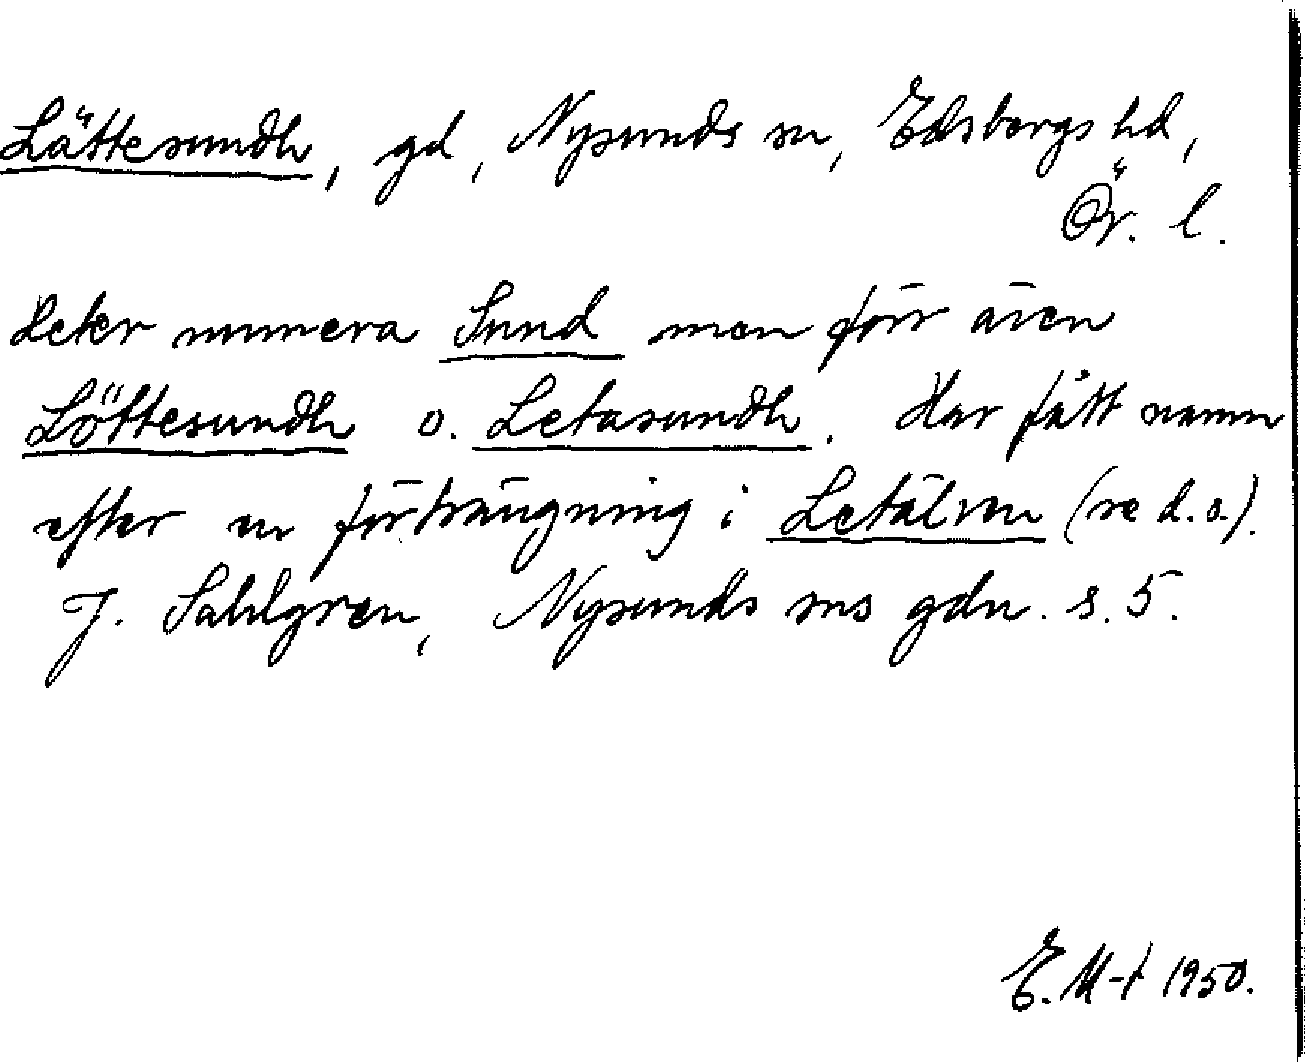 Lättesundh, gd, Nysunds sn, Edsbergs hd,
Ör. l.
Heter numera Sund men förr även
Löttesundh o. Letasundh. Har fått namn
efter en förträngning i Letälven (se d.o.).
J. Sahlgren, Nysunds sns gdn. s. 5.
E. M-t 1950.